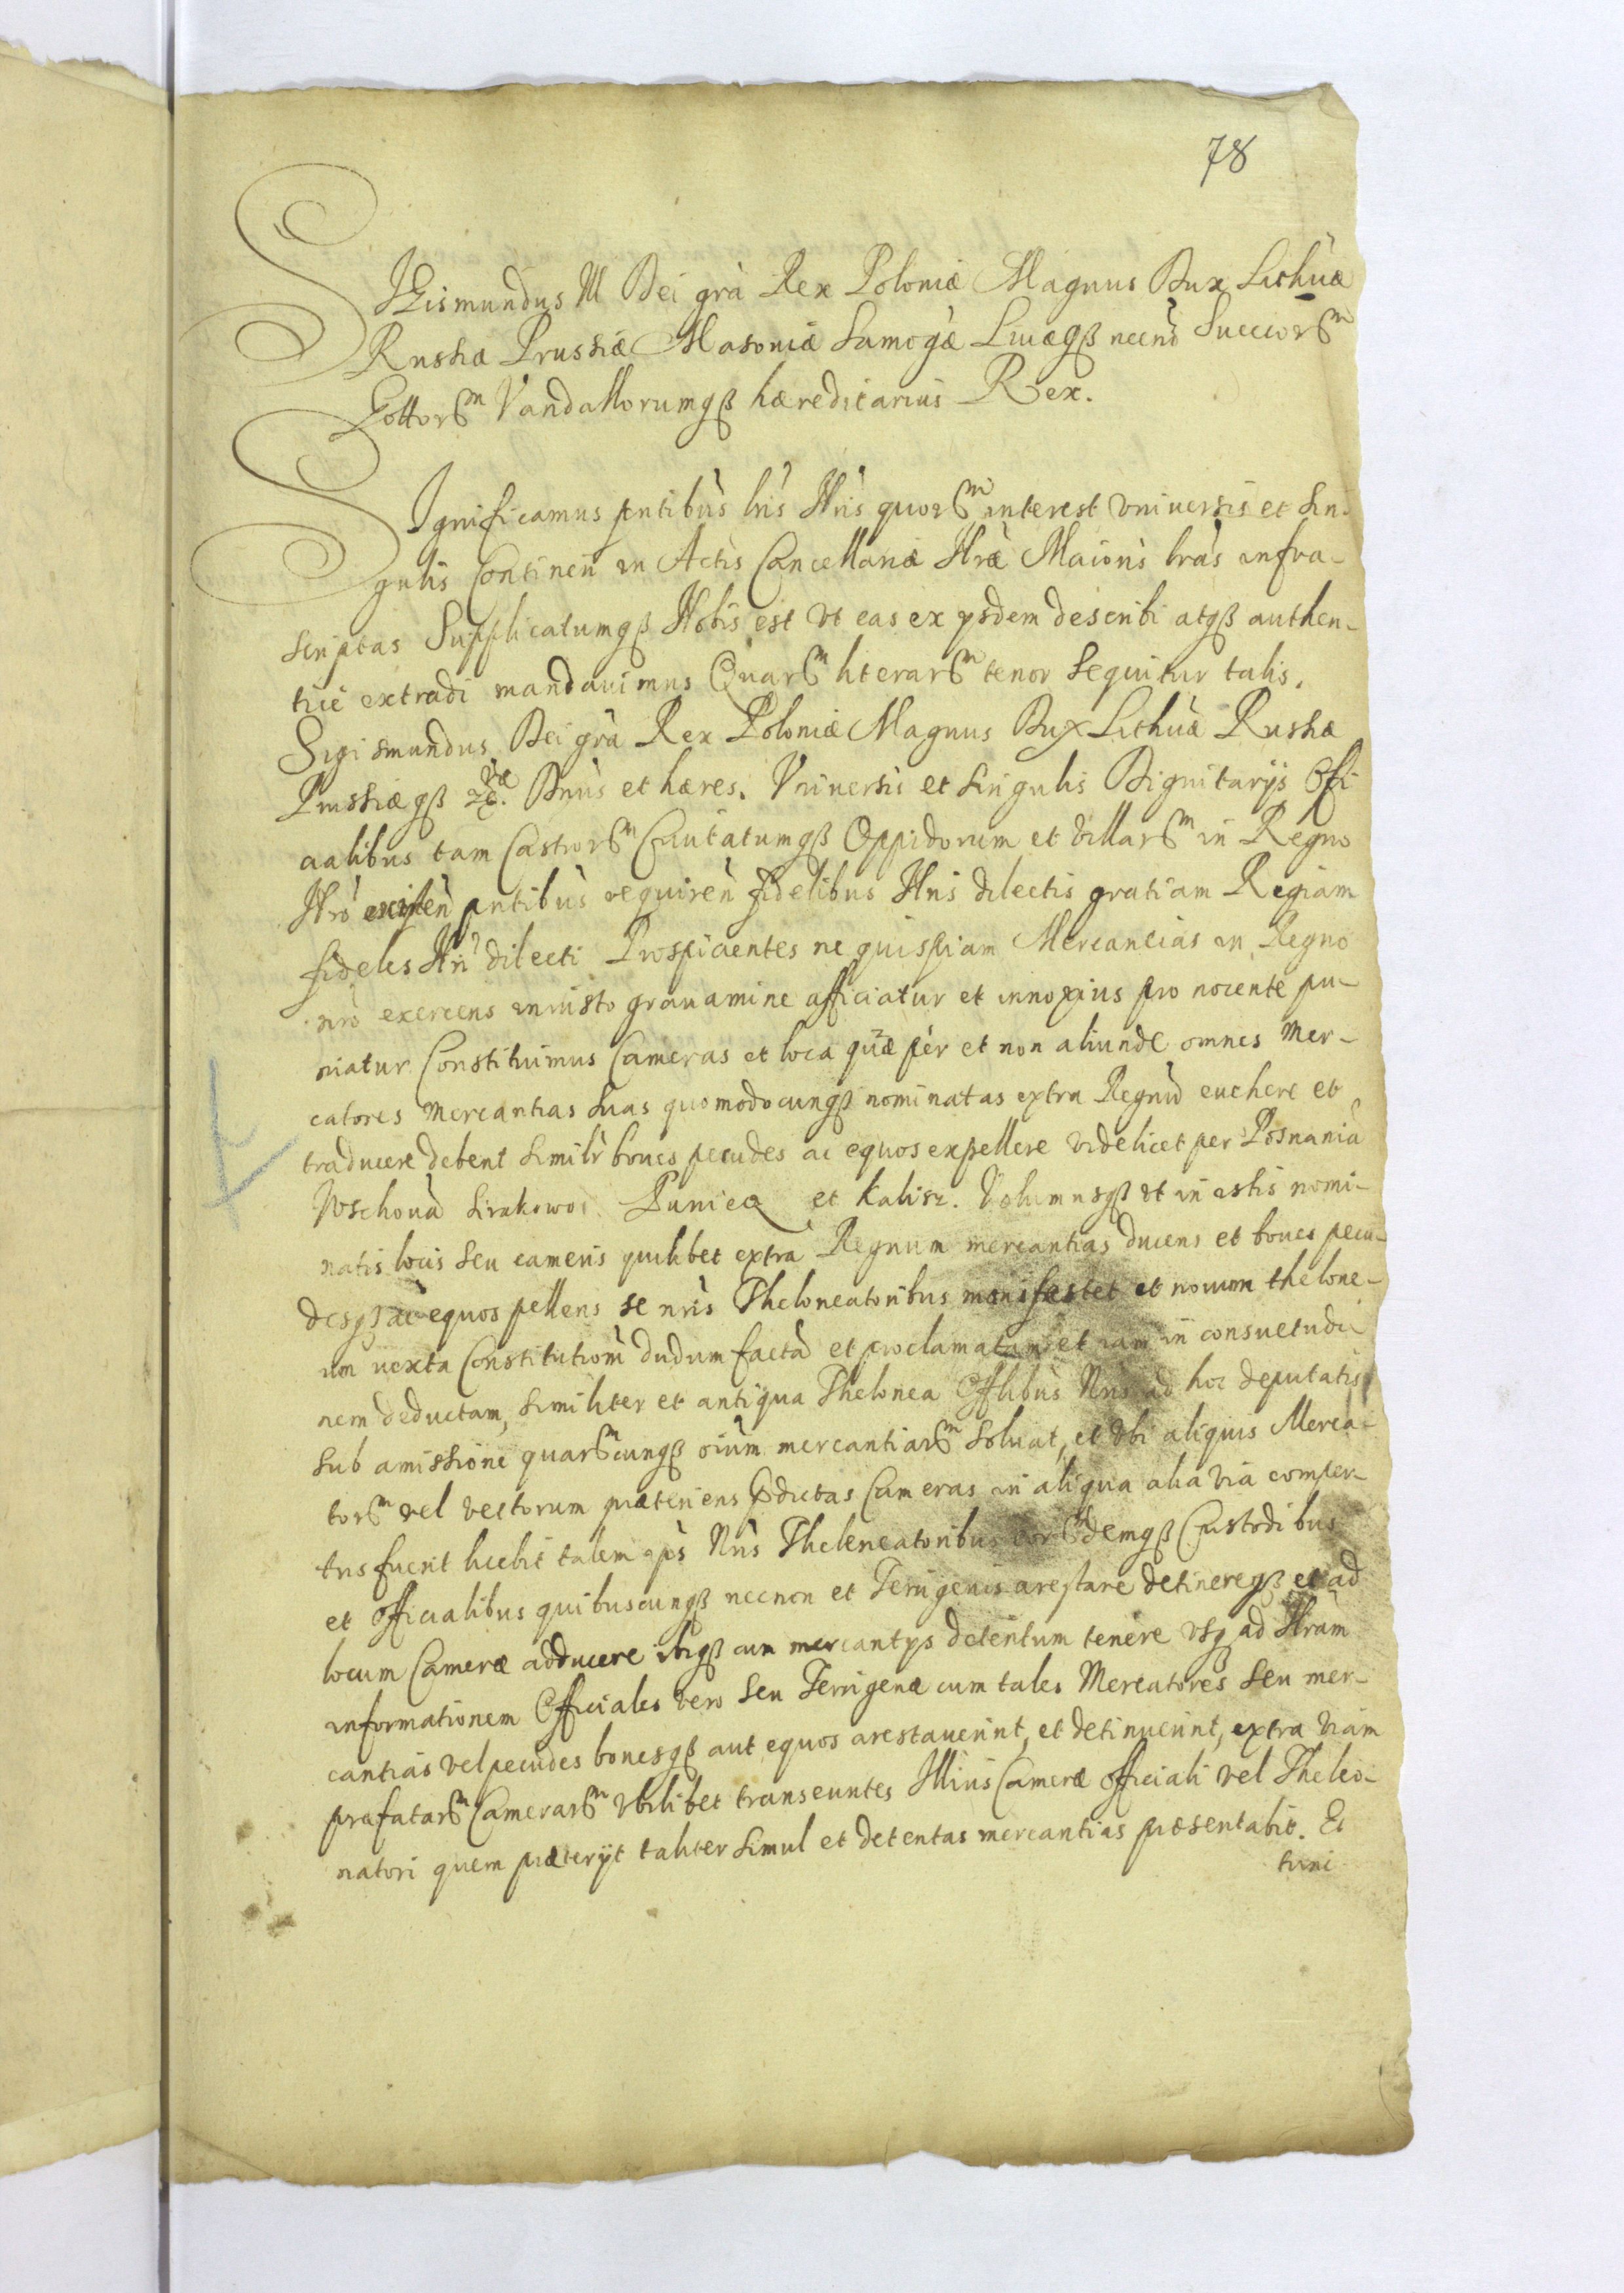 78
SIgismundus III Dei grà Rex Poloniæ Magnus Dux Lithuæ
Russiæ Prussiæ Masouiæ Samogæ Liuæqß necnò Suecorm
Gottorm Vandallorumqß hæreditarius Rex.
SIgnificamus pntibùs lris Nris quorm interest vniuersis et sin-
gulis Contineri in Actis Cancellariæ Nræ Maioris lras infra-
scriptas Supplicatumqß Nobis est vt eas ex ysdem describi atqß authen-
tice extradi mandauimus Quarm literarm tenor sequitur talis.
Sigismundus Dei grà Rex Poloniæ Magnus Dux Lithuæ Russiæ
Prussiæqß Dnus et hæres. Vniuersis et singulis Dignitarys Offi
cialibus tam Castrorm Ciuitatumqß Oppidorum et Villarm in Regno
Nrò existeñ pntibùs requireñ fidelibus Nris dilectis gratiam Regiam
fideles Nri dilecti Prospicientes ne quispiam Mercancias in Regno
nrò exercens iniusto grauamine afficiatur et innoxius pro nocente pu-
niatur Constituimus Cameras et loca quæ per et non aliunde omnes mer-
catores mercantias suas quomodocunqß nominatas extra Regnù euehere et
traducere debent similr boues pecudes ac equos expellere videlicet per Posnanià
Wschouà Sirakowo Puniecz et Kalisz. Volumusqß vt in istis nomi-
natis locis seu cameris quilibet extra Regnum mercantias ducens et boues pecu-
desqß ac equos pellens se nris Theloneatoribus manifestet et nouum thelone-
um iuxta Constitutiom dudum factà et proclamatam et iam in consuetudi-
nem deductam, similiter et antiqua Thelonea Offlibùs Nris ad hoc deputatis
sub amissione quarmcunqß oium mercantiarm soluat, et vbi aliquis Merca-
torm vel vectorum præteriens pdictas Cameras in aliqua alia via comper-
tus fuerit licebit talem ipis Nris Theloneatoribus eormdemqß Custodibus
et Officialibus quibuscunqß necnon et Terrigenis arestare detinereqß et ad
locum Cameræ adducere ibiqß cum mercantys detentum tenere vsq ad Nram
informationem Officiales vero seu Terrigenæ cum tales Mercatores seu mer-
cantias vel pecudes bouesqß aut equos arestauerint, et detinuerint, extra viam
prafatarm Camerarm vbilibet transeuntes Illius Cameræ Officiali vel Theleo-
natori quem præteryt taliter simul et detentas mercantias præsentabit. Et
tunc